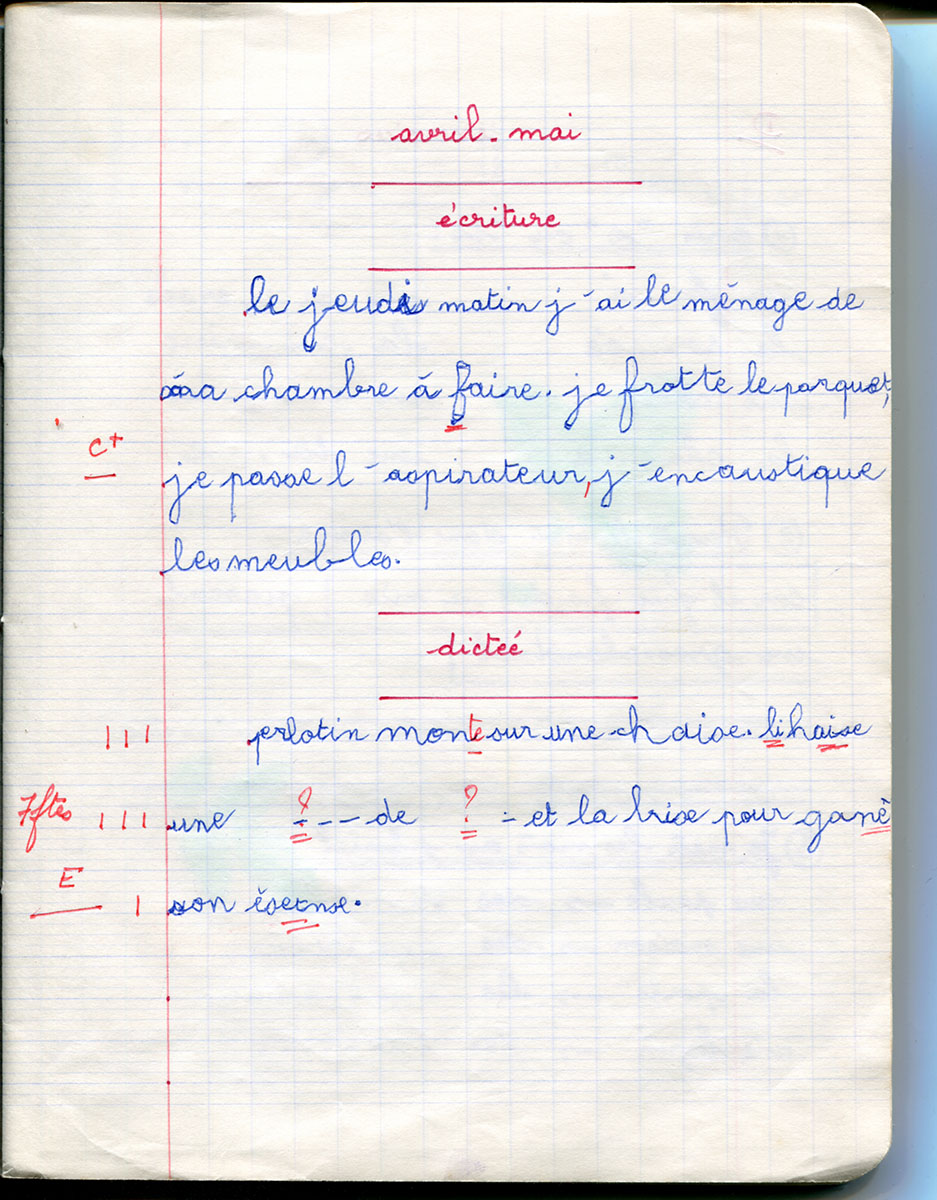 avril - mai
écriture
le jeudi matin j'ai le ménage de
ma chambre à faire. je frotte le parquet,
c+
je passe l'aspirateur, j'encaustique
les meubles.
dicteé
perlotin monte sur une chaise. li haise
7 ftes une ? --- de ? - et la brise pour ganê
E
son